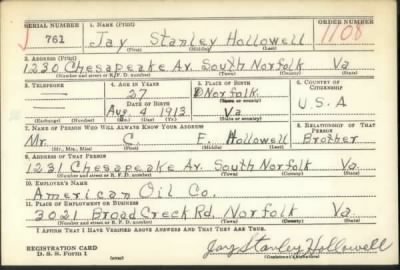 SERIAL NUMBER 1. NAME (Print) ORDER NUMBER
761 Jay Stanley Hollowell 1108
(First) (Middle) (Last)
2. ADDRESS (Print)
1230 Chesapeake Av. South Norfolk Va
(Number and street or R. F. D. number) (Town) (County) (State)
3. TELEPHONE 4. AGE IN YEARS 5. PLACE OF BIRTH 6. COUNTRY OF CITIZENSHIP
27 Norfolk
DATE OF BIRTH (Town or county)
Aug 1913 Va U.S.A
(Exchange) (Number) (Mo.) (Day) (Yr.) (State or country)
7. NAME OF PERSON WHO WILL ALWAYS KNOW YOUR ADDRESS 8. RELATIONSHIP OF THAT PERSON
Mr. C. F. Hollowell Brother
(Mr., Mrs., Miss) (First) (Middle) (Last)
9. ADDRESS OF THAT PERSON
1231 Chesapeake Av. South Norfolk Va
(Number and street or R. F. D. number) (Town) (County) (State)
10. EMPLOYER'S NAME
American Oil Co.
11. PLACE OF EMPLOYMENT OR BUSINESS
3021 Broad Creek Rd. Norfolk Va
(Number and street or R. F. D. number) (Town) (County) (State)
I AFFIRM THAT I HAVE VERIFIED ABOVE ANSWERS AND THAT THEY ARE TRUE.
REGISTRATION CARD
D. S. S. Form 1 (over) Jay Stanley Hollowell
(Registrant's signature)